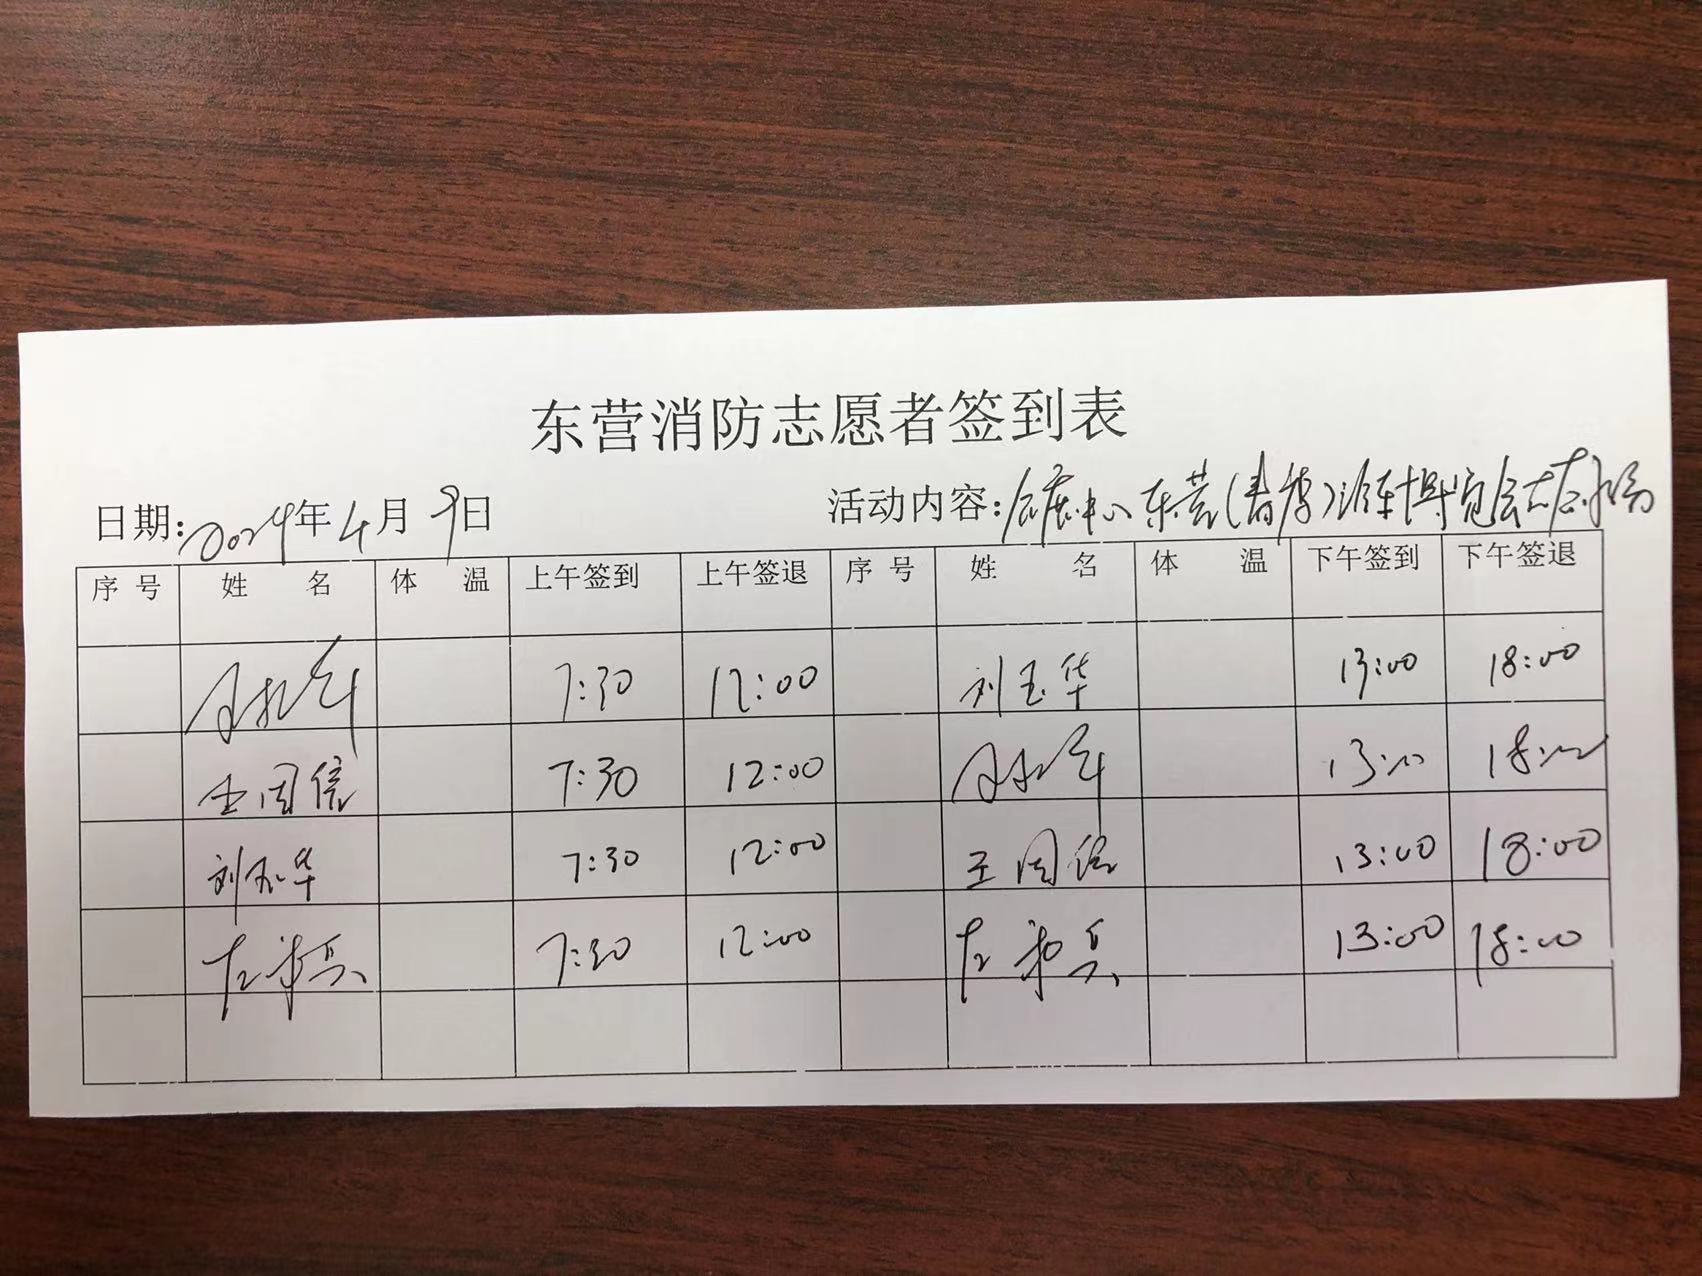 东营消防志愿者签到表
日期:2024年4月9日 活动内容:会展中心东营(春季)汽车博览会
序号 姓名 体温 上午签到 上午签退 序号 姓名 体温 下午签到 下午签退
7:30 12:00 刘玉华 13:00 18:00
王国信 7:30 12:00 13:00 18:00
刘玉华 7:30 12:00 王国信 13:00 18:00
7:30 12:00 13:00 18:00